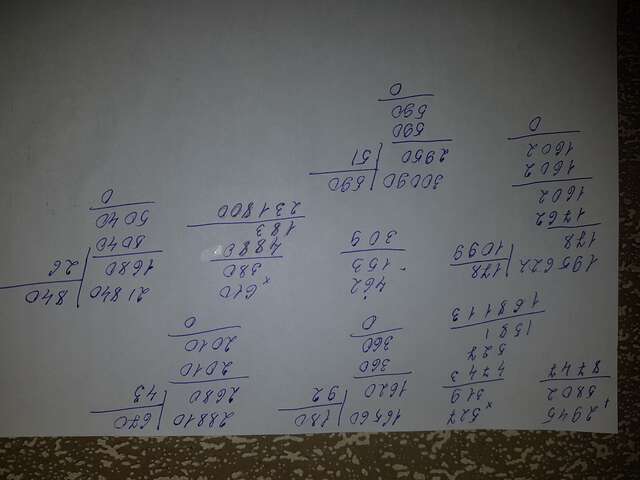 + 2945
5802
8747
× 527
319
4743
527
1581
168113
16560 | 180
1620 | 92
360
360
0
28810 | 670
2680 | 43
2010
2010
0
195622 | 178
178 | 1099
1762
1602
1602
1602
0
- 462
153
309
× 610
380
4880
183
231800
21840 | 840
1680 | 26
5040
5040
0
30090 | 590
2950 | 51
590
590
0